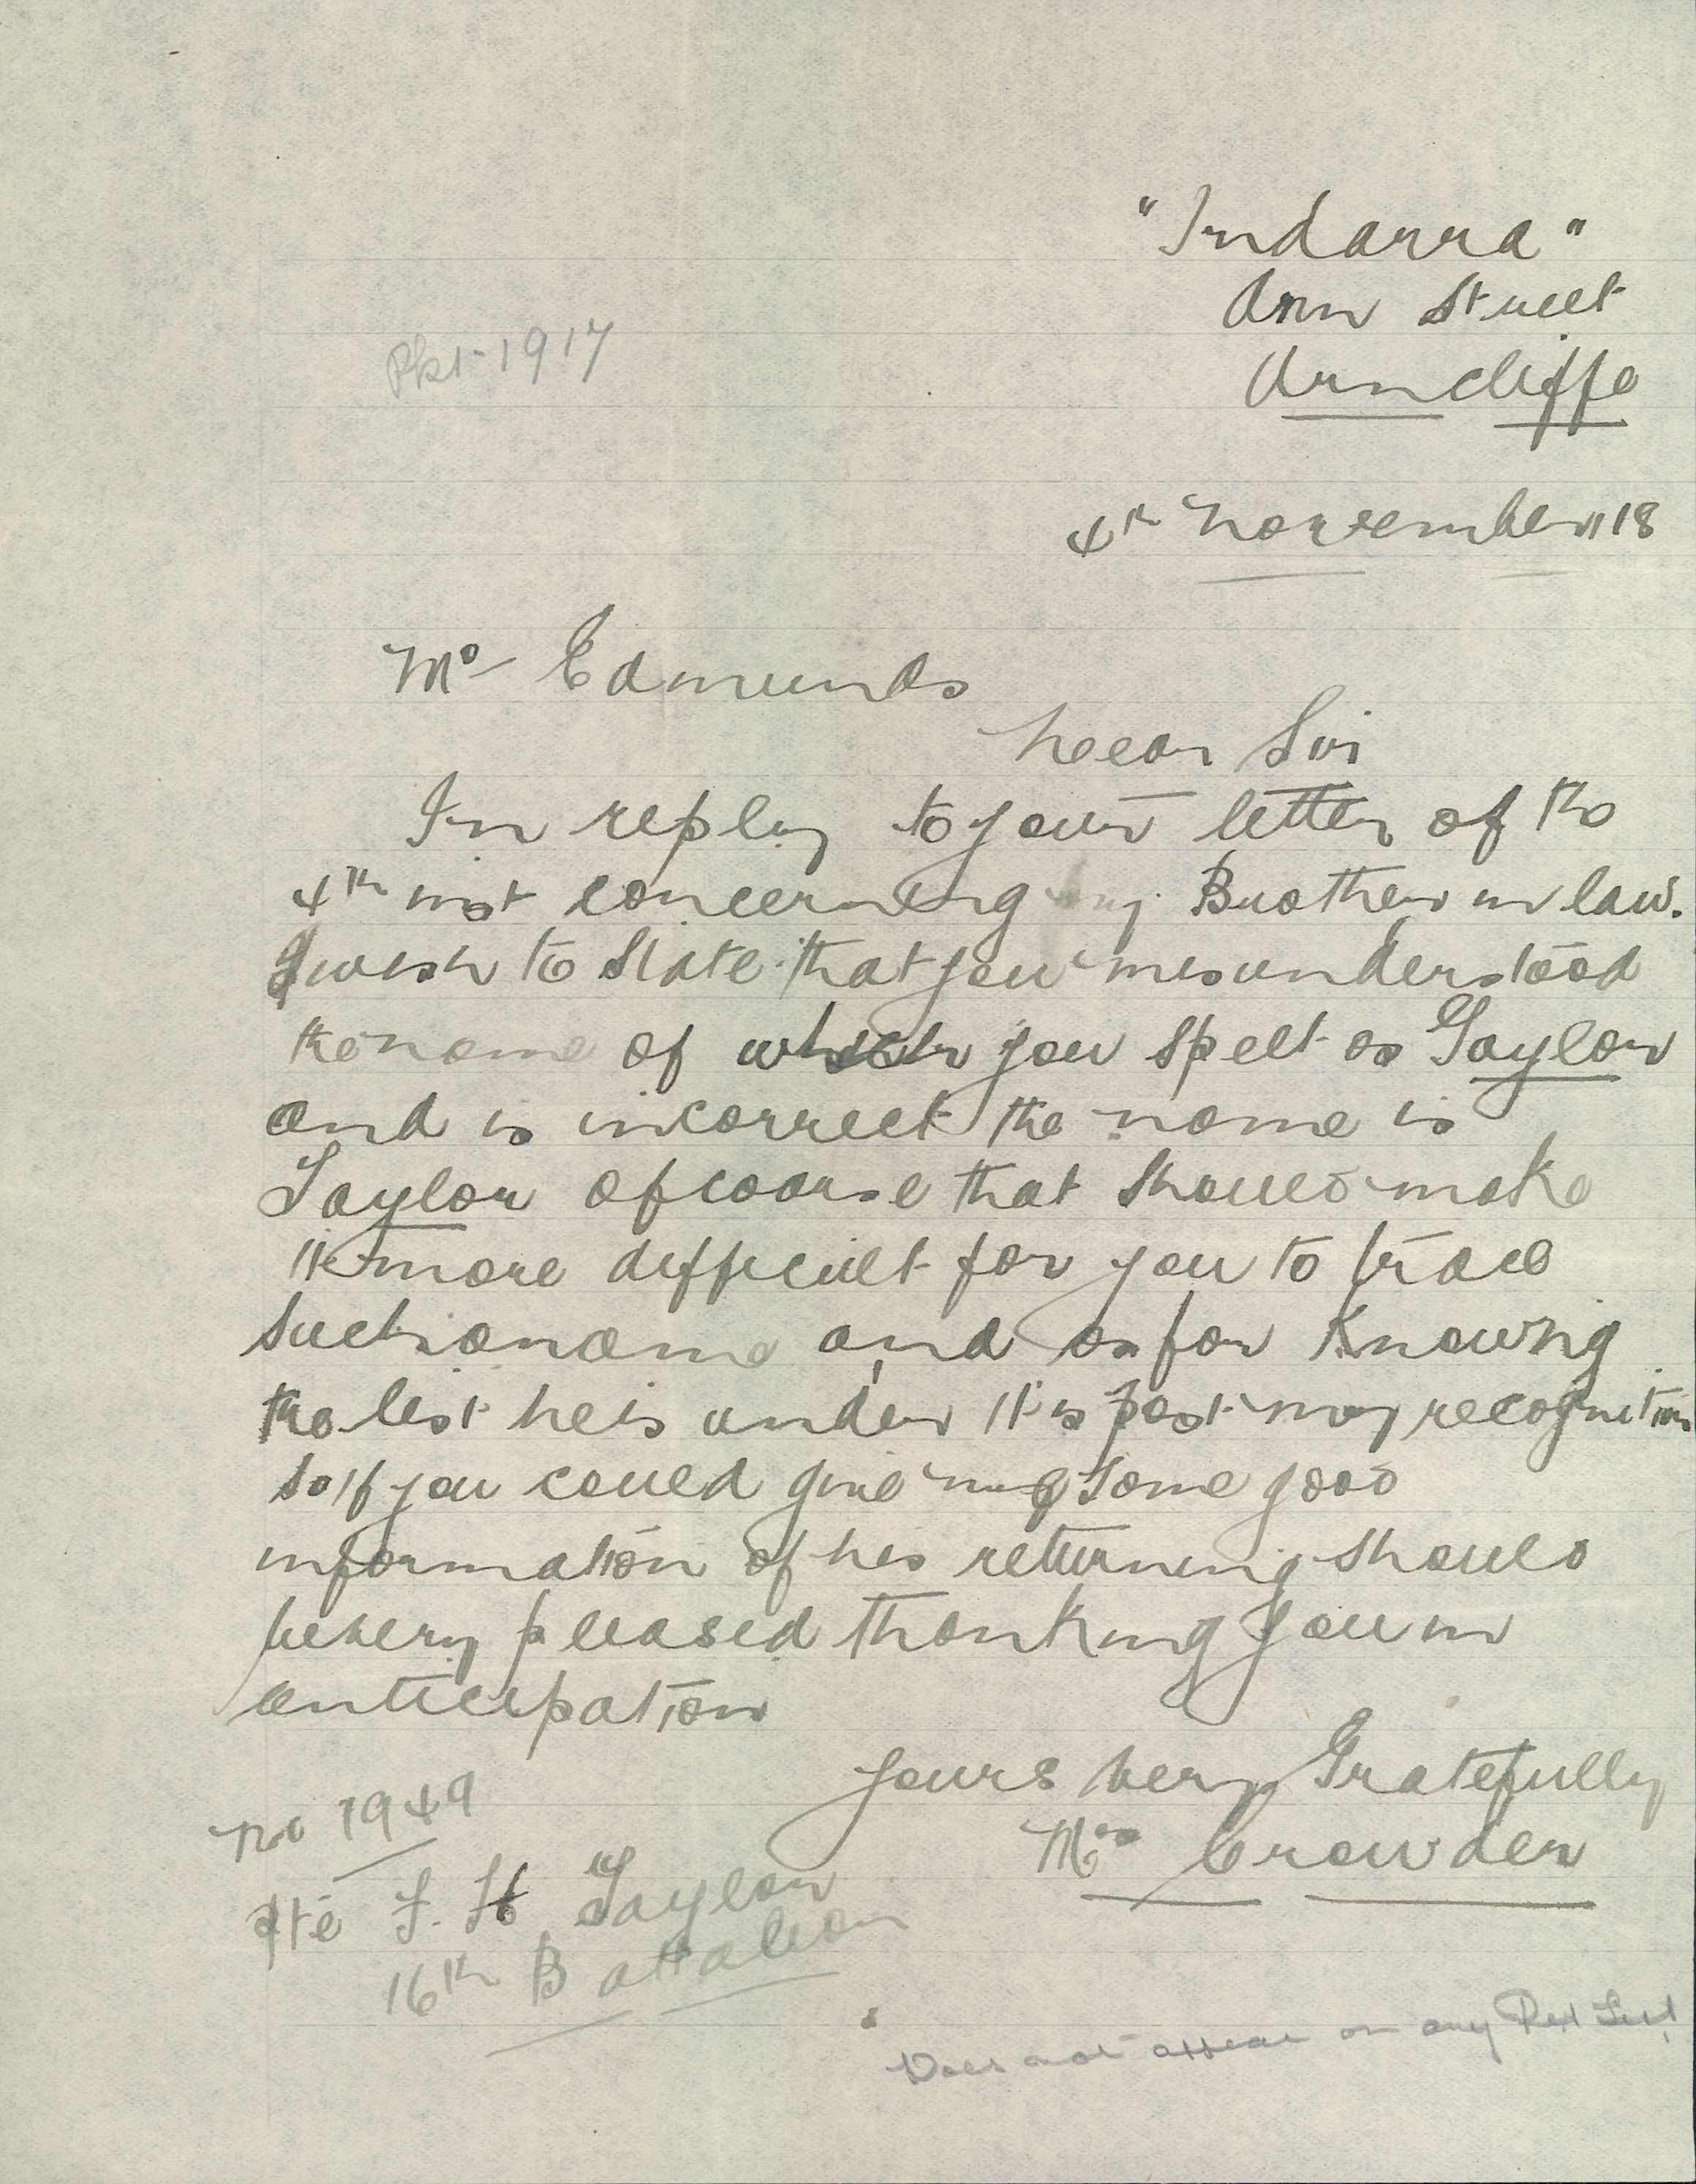 "Indarra"
Ann Street
Arncliffe
Pkt 1917
4th November 18
Mr Edmunds
Dear Sir
In reply to your letter of the
4th inst concerning my Brother in law.
I wish to State that you misunderstood
the name of which you spelt as Gaylor
and is incorrect the name is
Taylor of course that should make
it more difficult for you to trace
such a name and as for Knowing
the list he is under it is past my recognition
so if you could give me some good
information of his returning should
be very pleased thanking you in
anticipation
yours very Gratefully
Mrs Crowder
No 1949
Pte F. H Taylor
16th Battalion
Does not appear on any Ret List